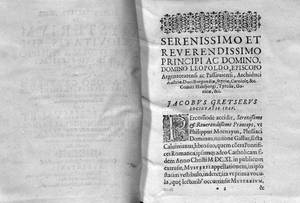 SERENISSIMO ET
REVERENDISSIMO
PRINCIPI AC DOMINO,
DOMINO LEOPOLDO, EPISCOPO
Argentoratensi ac Passauiensi, Archiduci
Austriæ, Duci Burgundiæ, Styriæ, Carinthiæ, &c.
Comiti Habspurgi, Tyrolis, Go-
ritiæ, &c.
IACOBVS GRETSERVS
SOCIETATIS IESV.
PErcommode accidit, Serenissime
et Reuerendissime Princeps, vt
Philippus Mornayus, Plessiaci
Dominus, natione Gallus, secta
Caluinianus, libro suo, quem contra Pontifi-
ces Romanos, ipsamque adeo Catholicam fi-
dem Anno Christi M DC XI. in publicum
extrusit, MYSTERII appellationem, vt ipso
statim vestibulo, inderet, vt ea prima voca-
la, quæ lectoribus occurrit MYSTERIVM,
&